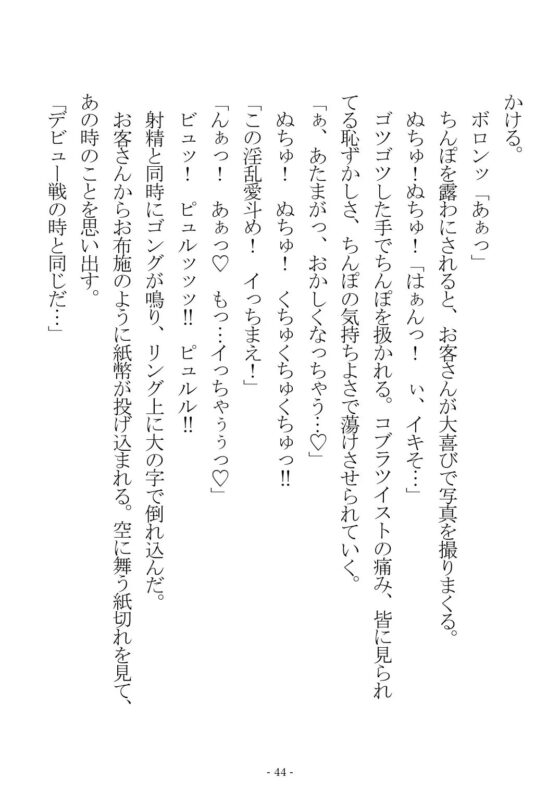 かける。
ボロンッ「あぁっ」
ちんぽを露わにされると、お客さんが大喜びで写真を撮りまくる。
ぬちゅ！ぬちゅ！「はぁんっ！　ぃ、イキそ…」
ゴツゴツした手でちんぽを扱かれる。コブラツイストの痛み、皆に見られ
てる恥ずかしさ、ちんぽの気持ちよさで蕩けさせられていく。
「ぁ、あたまがっ、おかしくなっちゃう…♡」
ぬちゅ！　ぬちゅ！　くちゅくちゅくちゅっ!!
「この淫乱愛斗め！　イっちまえ！」
「んぁっ！　あぁっ♡　もっ…イっちゃぅぅっ♡」
ビュッ！　ピュルッッッ!!　ピュルル!!
射精と同時にゴングが鳴り、リング上に大の字で倒れ込んだ。
お客さんからお布施のように紙幣が投げ込まれる。空に舞う紙切れを見て、
あの時のことを思い出す。
「デビュー戦の時と同じだ…」
- 44 -